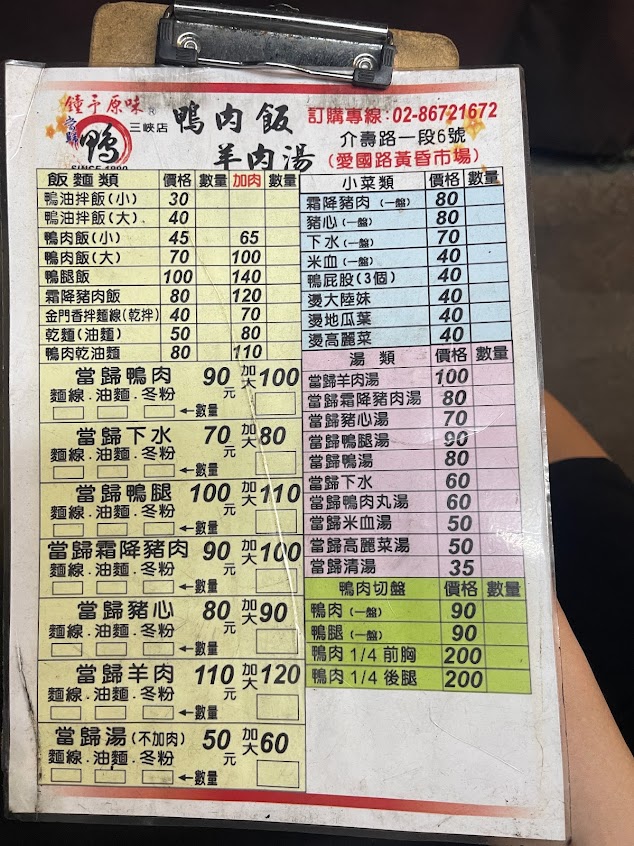 鐘予原味®
當歸鴨
SINCE 1990
三峽店
鴨肉飯
羊肉湯
訂購專線:02-86721672
介壽路一段6號
(愛國路黃昏市場)
飯麵類 價格 數量 加肉 數量
鴨油拌飯(小) 30
鴨油拌飯(大) 40
鴨肉飯(小) 45 65
鴨肉飯(大) 70 100
鴨腿飯 100 140
霜降豬肉飯 80 120
金門香拌麵線(乾拌) 40 70
乾麵(油麵) 50 80
鴨肉乾油麵 80 110
當歸鴨肉 90元 加大100
麵線.油麵.冬粉
←數量
當歸下水 70元 加大80
麵線.油麵.冬粉
←數量
當歸鴨腿 100元 加大110
麵線.油麵.冬粉
←數量
當歸霜降豬肉 90元 加大100
麵線.油麵.冬粉
←數量
當歸豬心 80元 加大90
麵線.油麵.冬粉
←數量
當歸羊肉 110元 加大120
麵線.油麵.冬粉
←數量
當歸湯(不加肉) 50元 加大60
麵線.油麵.冬粉
←數量
小菜類 價格 數量
霜降豬肉(一盤) 80
豬心(一盤) 80
下水(一盤) 70
米血(一盤) 40
鴨屁股(3個) 40
燙大陸妹 40
燙地瓜葉 40
燙高麗菜 40
湯類 價格 數量
當歸羊肉湯 100
當歸霜降豬肉湯 80
當歸豬心湯 70
當歸鴨腿湯 90
當歸鴨湯 80
當歸下水 60
當歸鴨肉丸湯 60
當歸米血湯 50
當歸高麗菜湯 50
當歸清湯 35
鴨肉切盤 價格 數量
鴨肉(一盤) 90
鴨腿(一盤) 90
鴨肉 1/4 前胸 200
鴨肉 1/4 後腿 200